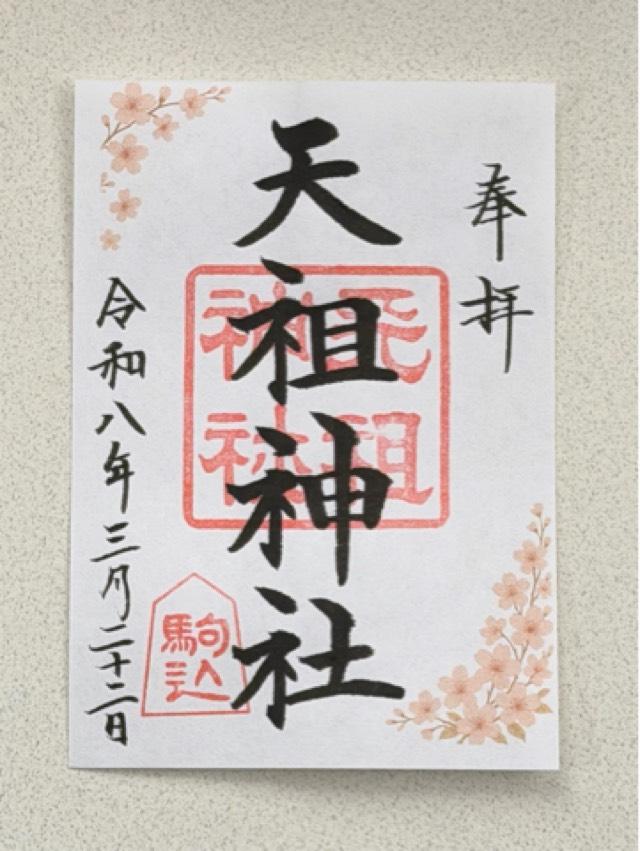 奉拝
天祖神社
天祖神社
駒込
令和八年三月二十二日